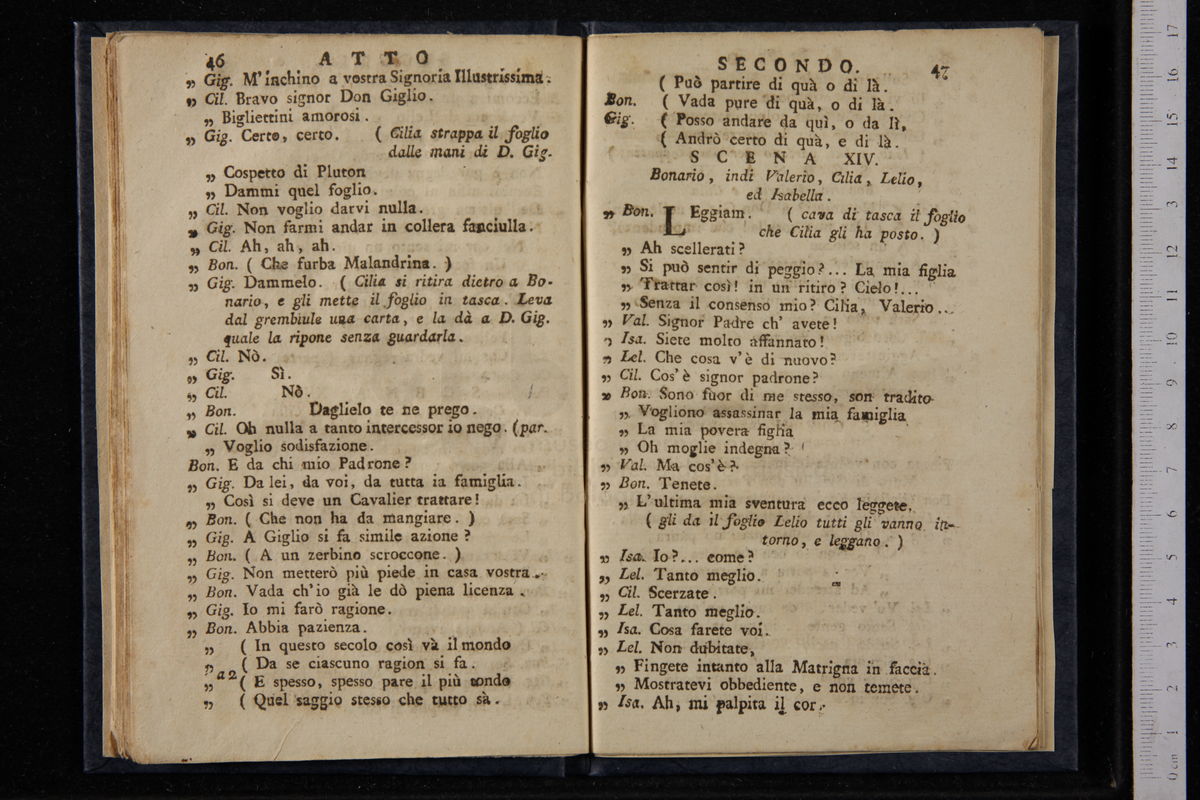 46 ATTO
„ Gig. M'inchino a vostra Signoria Illustrissima.
„ Cil. Bravo signor Don Giglio.
„ Bigliettini amorosi.
„ Gig. Certo, certo. ( Cilia strappa il foglio
dalle mani di D. Gig.
„ Cospetto di Pluton
„ Dammi quel foglio.
„ Cil. Non voglio darvi nulla.
„ Gig. Non farmi andar in collera fanciulla.
„ Cil. Ah, ah, ah.
„ Bon. ( Che furba Malandrina. )
„ Gig. Dammelo. ( Cilia si ritira dietro a Bo-
nario, e gli mette il foglio in tasca. Leva
dal grembiule una carta, e la dà a D. Gig.
quale la ripone senza guardarla.
„ Cil. Nò.
„ Gig. Sì.
„ Cil. Nò.
„ Bon. Daglielo te ne prego.
„ Cil. Oh nulla a tanto intercessor io nego. (par.
„ Voglio sodisfazione.
Bon. E da chi mio Padrone?
„ Gig. Da lei, da voi, da tutta ia famiglia.
„ Così si deve un Cavalier trattare!
„ Bon. ( Che non ha da mangiare. )
„ Gig. A Giglio si fa simile azione?
„ Bon. ( A un zerbino scroccone. )
„ Gig. Non metterò più piede in casa vostra.
„ Bon. Vada ch'io già le dò piena licenza.
„ Gig. Io mi farò ragione.
„ Bon. Abbia pazienza.
„ ( In questo secolo così và il mondo
„ ( Da se ciascuno ragion si fa.
„ a 2 ( E spesso, spesso pare il più tondo
„ ( Quel saggio stesso che tutto sà.
SECONDO. 47
( Può partire di quà o di là.
Bon. ( Vada pure di quà, o di là.
Gig. ( Posso andare da quì, o da lì,
( Andrò certo di quà, e di là.
SCENA XIV.
Bonario, indi Valerio, Cilia, Lelio,
ed Isabella.
„ Bon. LEggiam. ( cava di tasca il foglio
che Cilia gli ha posto. )
„ Ah scellerati?
„ Si può sentir di peggio?... La mia figlia
„ Trattar così! in un ritiro? Cielo!...
„ Senza il consenso mio? Cilia, Valerio...
„ Val. Signor Padre ch' avete!
„ Isa. Siete molto affannato!
„ Lel. Che cosa v'è di nuovo?
„ Cil. Cos'è signor padrone?
„ Bon. Sono fuor di me stesso, son tradito
„ Vogliono assassinar la mia famiglia
„ La mia povera figlia
„ Oh moglie indegna?
„ Val. Ma cos'è?
„ Bon. Tenete.
„ L'ultima mia sventura ecco leggete.
( gli da il foglio Lelio tutti gli vanno in-
torno, e leggano. )
„ Isa. Io?... come?
„ Lel. Tanto meglio.
„ Cil. Scerzate.
„ Lel. Tanto meglio.
„ Isa. Cosa farete voi.
„ Lel. Non dubitate,
„ Fingete intanto alla Matrigna in faccia.
„ Mostratevi obbediente, e non temete.
„ Isa. Ah, mi palpita il cor.
0 cm 1 2 3 4 5 6 7 8 9 10 11 12 13 14 15 16 17